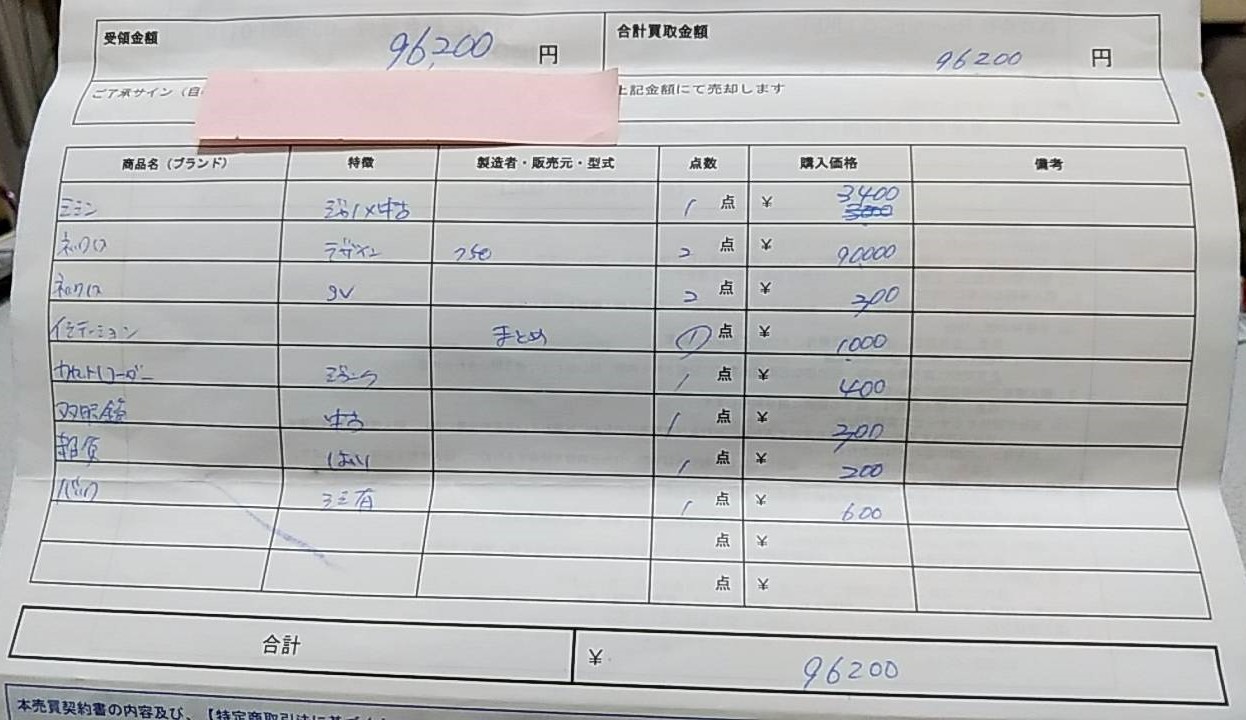 受領金額 96,200 円 合計買取金額 96200 円
ご了承サイン（自 上記金額にて売却します
商品名（ブランド） 特徴 製造者・販売元・型式 点数 購入価格 備考
ミシン 中古 1 点 ¥ 3400
ネックレス デザイン 750 2 点 ¥ 90,000
ネックレス SV 2 点 ¥ 300
イミテーション まとめ ① 点 ¥ 1,000
カセットレコーダー ジャンク 1 点 ¥ 400
双眼鏡 中古 1 点 ¥ 300
雑貨 1 点 ¥ 200
バッグ シミ有 1 点 ¥ 600
点 ¥
点 ¥
合計 ¥ 96200
本売買契約書の内容及び、【特定商取引法に基づく